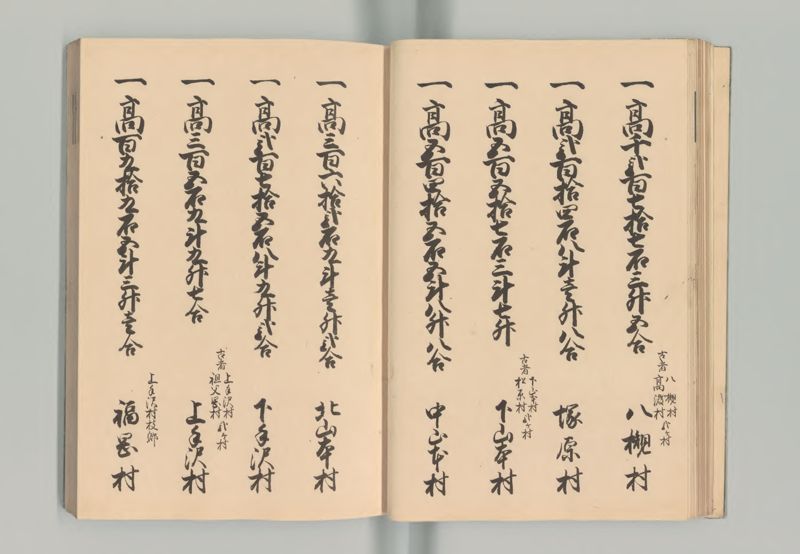 一高千弐百七拾七石三升五合
古者
八槻村
高渡村
弐ヶ村
八槻村
一高弐百拾四石八斗壱升八合
塚原村
一高五百五拾七石三斗七升
古者
下山本村
松原村
弐ヶ村
下山本村
一高五百四拾五石五斗八升八合
中山本村
一高三百六拾弐石九斗壱升弐合
北山本村
一高弐百七拾五石八斗九升弐合
下手沢村
一高三百五石九斗九升七合
古者
上手沢村
祖父岡村
弐ヶ村
上手沢村
一高百九拾九石五斗三升壱合
上手沢村枝郷
福岡村